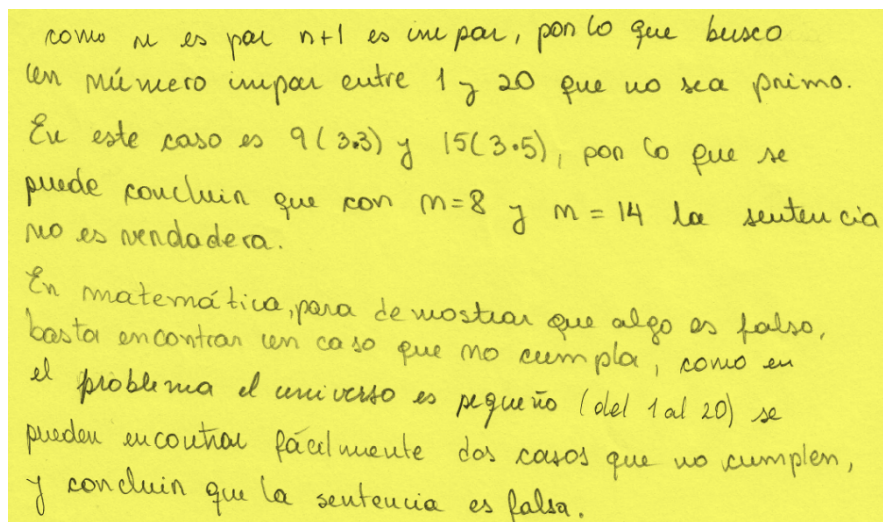 como n es par n+1 es impar, por lo que busco
un número impar entre 1 y 20 que no sea primo.
En este caso es 9(3·3) y 15(3·5), por lo que se
puede concluir que con n=8 y n=14 la sentencia
no es verdadera.
En matemática, para demostrar que algo es falso,
basta encontrar un caso que no cumpla, como en
el problema el universo es pequeño (del 1 al 20) se
pueden encontrar fácilmente dos casos que no cumplen,
y concluir que la sentencia es falsa.